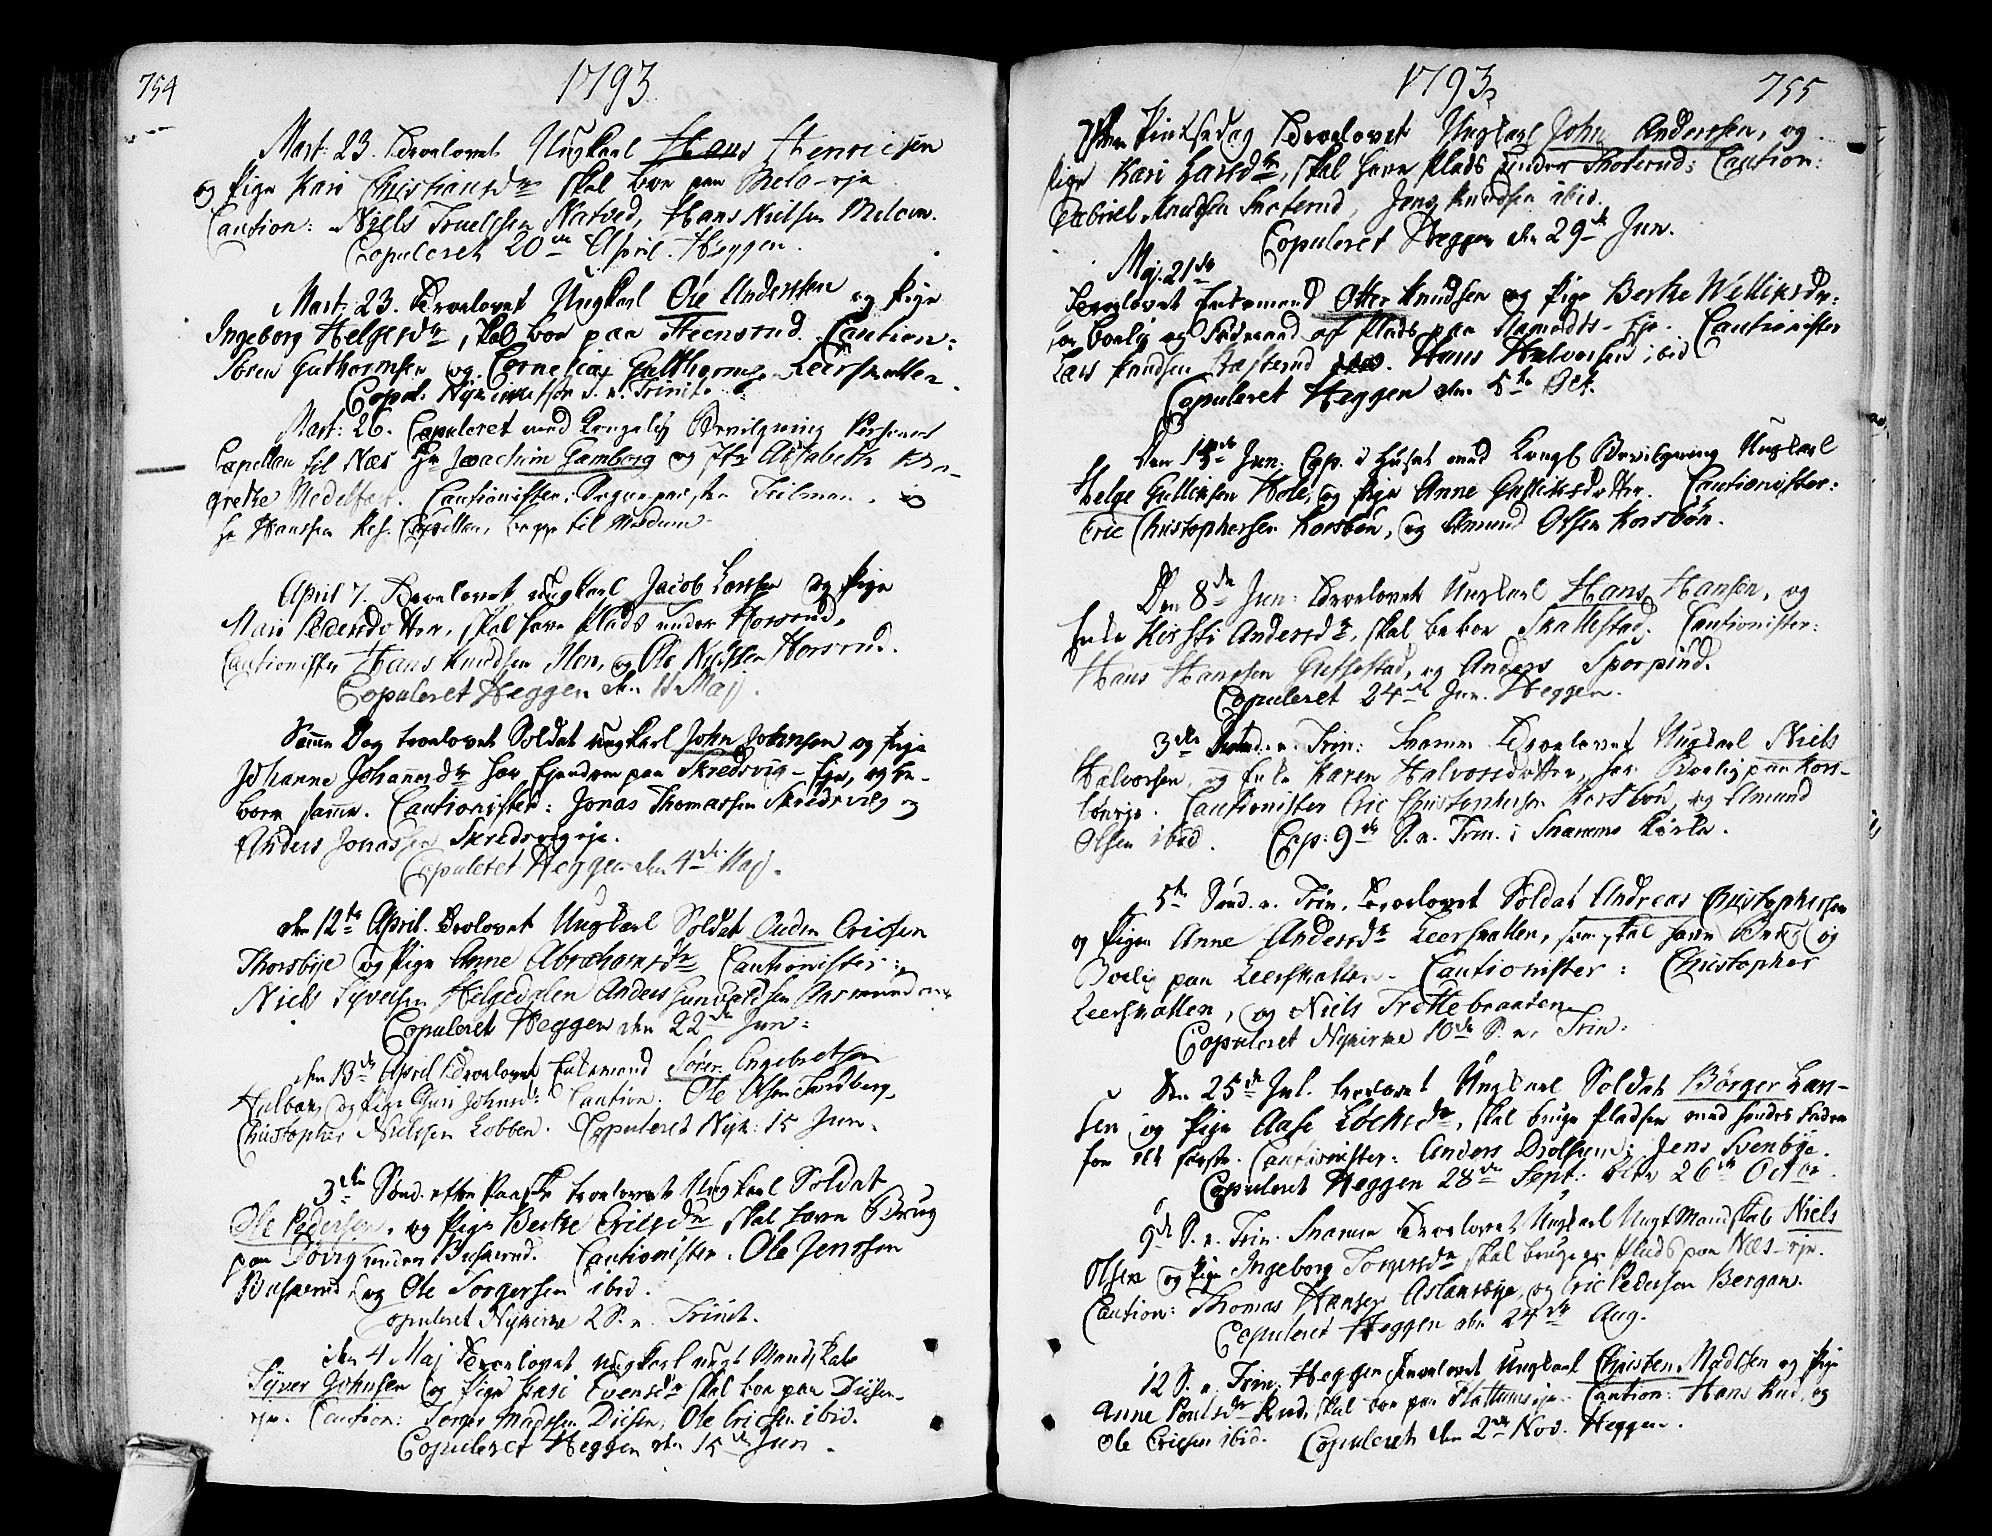 754
1793
Mart: 23. Trolovet Ungkarl Hans Henricsen
og Pige Kari Christiansdr skal boe paa Melo-eje
Caution: Niels Truelssen Natved, Hans Nielsen Meloen.
Copuleret 20de April Heggen.
Mart: 23. Trolovet Ungkarl Ole Anderssen og Pige
Ingeborg Helgesdr, skal boe paa Steensrud. Caution:
Sören Guthormsen og Cornelius Gutthormss. Leerskallen.
Copul. Nykirke S. n. Trinit.
Mart: 26. Copuleret med Kongelig Bevilgning Personel
Capellan til Næs Hr Joachim Gamborg og Jfr Elisabeth Mar-
grethe Medelfart. Cautionister: Sogne præsten Tuleman
Hr Hanssen Res. Capellan, begge til Modum.
April 7. Trolovet ungkarl Jacob Larssen og Pige
Mari Pedersdotter, skal have Plads under Horsrud.
Cautionister Hans Knudsen Ilen, og Ole Nielssen Horsrud.
Copuleret Heggen den 11 Maj.
Samme Dag trolovet Soldat ungkarl John Johnsen og Pige
Johanne Johannesdr har Ejendom paa Skredsvig-Eje, og be-
boer samme. Cautionister: Jonas Thomassen Skredsvig og
Anders Jonassen Skredsvigeje.
Copuleret Heggen den 4de Maj.
den 12te April. Trolovet Ungkarl Soldat Ouden Ericsen
Thorsbye og Pige Anne Abrahamsdr Cautionister:
Niels Syvelsen Helgedalen Anders Gunvaldsen
Copuleret Heggen den 22de Jun:
den 13de April Trolovet Enkemand Sören Engebretsen
og Pige Guri Johnsdr Caution: Ole Olsen Sandberg,
Christopher Nielssen Lobben. Copuleret Nyk: 15 Jun.
3die Sönd. efter Paaske trolovet Ungkarl Soldat
Ole Pedersen, og Pige Berthe Erichsdr skal have Brug
paa under Buskerud. Cautionister: Ole Jenssen
Buskerud, og Ole Torgersen ibid.
Copuleret Nykirke 2 S. n. Trinit.
den 4 Maj Trolovet ungkarl ungt Mandskab
Syver Johnsen og Pige Kari Evensdr skal boe paa Diisen-
eje. Caution: Torger Madssen Diisen, Ole Ericsen ibid.
Copuleret Heggen den 15de Jun.
1793
755
Pintsedag Trolovet Ungkarl John Anderssen, og
Pige Kari Larsdr, skal have Plads under Skoterud: Caution:
Gabriel Knudsen Skoterud, Jens Knudsen ibid.
Copuleret Heggen den 29de Jun.
Maj: 21de
Trolovet Enkemand Otter Knudsen og Pige Berthe
boelig og Födevand af Plads paa Cautionister
Lars Knudsen Hans Halvorsen ibid
Copuleret Heggen den 5te Oct.
Den 15de Jun: Cop. i Huset med Kongl Bevilgning Ungkarl
Helge Gulliksen Hole, og Pige Anne Gulliksdotter. Cautionister:
Eric Christophersen Korsbön, og Amund Olsen Korsbön.
Den 8de Jun: Trolovet Ungkarl Hans Hansen, og
Enke Kirsti Andersdr, skal beboe Skallestad. Cautionister:
Hans Hanssen Gullestad, og Anders Sporpind.
Copuleret 24de Jun. Heggen.
3die Sönd. n. Trin: Snarum Trolovet Ungkarl Niels
Halvorsen og Enke Karen Halvorsdotter, har Boelig paa Kors-
böneje. Cautionister Eric Christophersen Korsbön, og Amund
Olsen ibid. Cop: 9de S. n. Trin. i Snarums Kirke.
5te Sönd. n. Trin. Trolovet Soldat Andreas Christophersen
og Pigen Anne Andersdr Leerskallen, som skal have Brug og
Boelig paa Leerskallen. Cautionister: Christopher
Leerskallen, og Niels Trættebraaten
Copuleret Nykirke 10de S. n. Trin:
Den 25de Jul. trolovet Ungkarl Soldat Börger Han-
sen og Pige Aase skal bruge Pladsen med hendes Fader
for det første. Cautionister: Anders Drolsum; Jens Svenbye.
Copuleret Heggen 28de Sept: blev 26de Octbr.
9de S. n. Trin. Snarum Trolovet Ungkarl Ungt Mandskab Niels
Olsen og Pige Ingeborg Torgersdr skal bruge en Plads paa Næs-eje.
Caution: Thomas Hansen Aslaksbye, og Eric Pedersen Bergan.
Copuleret Heggen den 24de Aug.
12 S. n. Trin. Heggen Trolovet Ungkarl Christen Madssen og Pige
Anne Poulsdr Rud, skal boe paa Caution: Hans Rud, og
Ole Ericsen ibid. Copuleret den 2den Nov. Heggen.